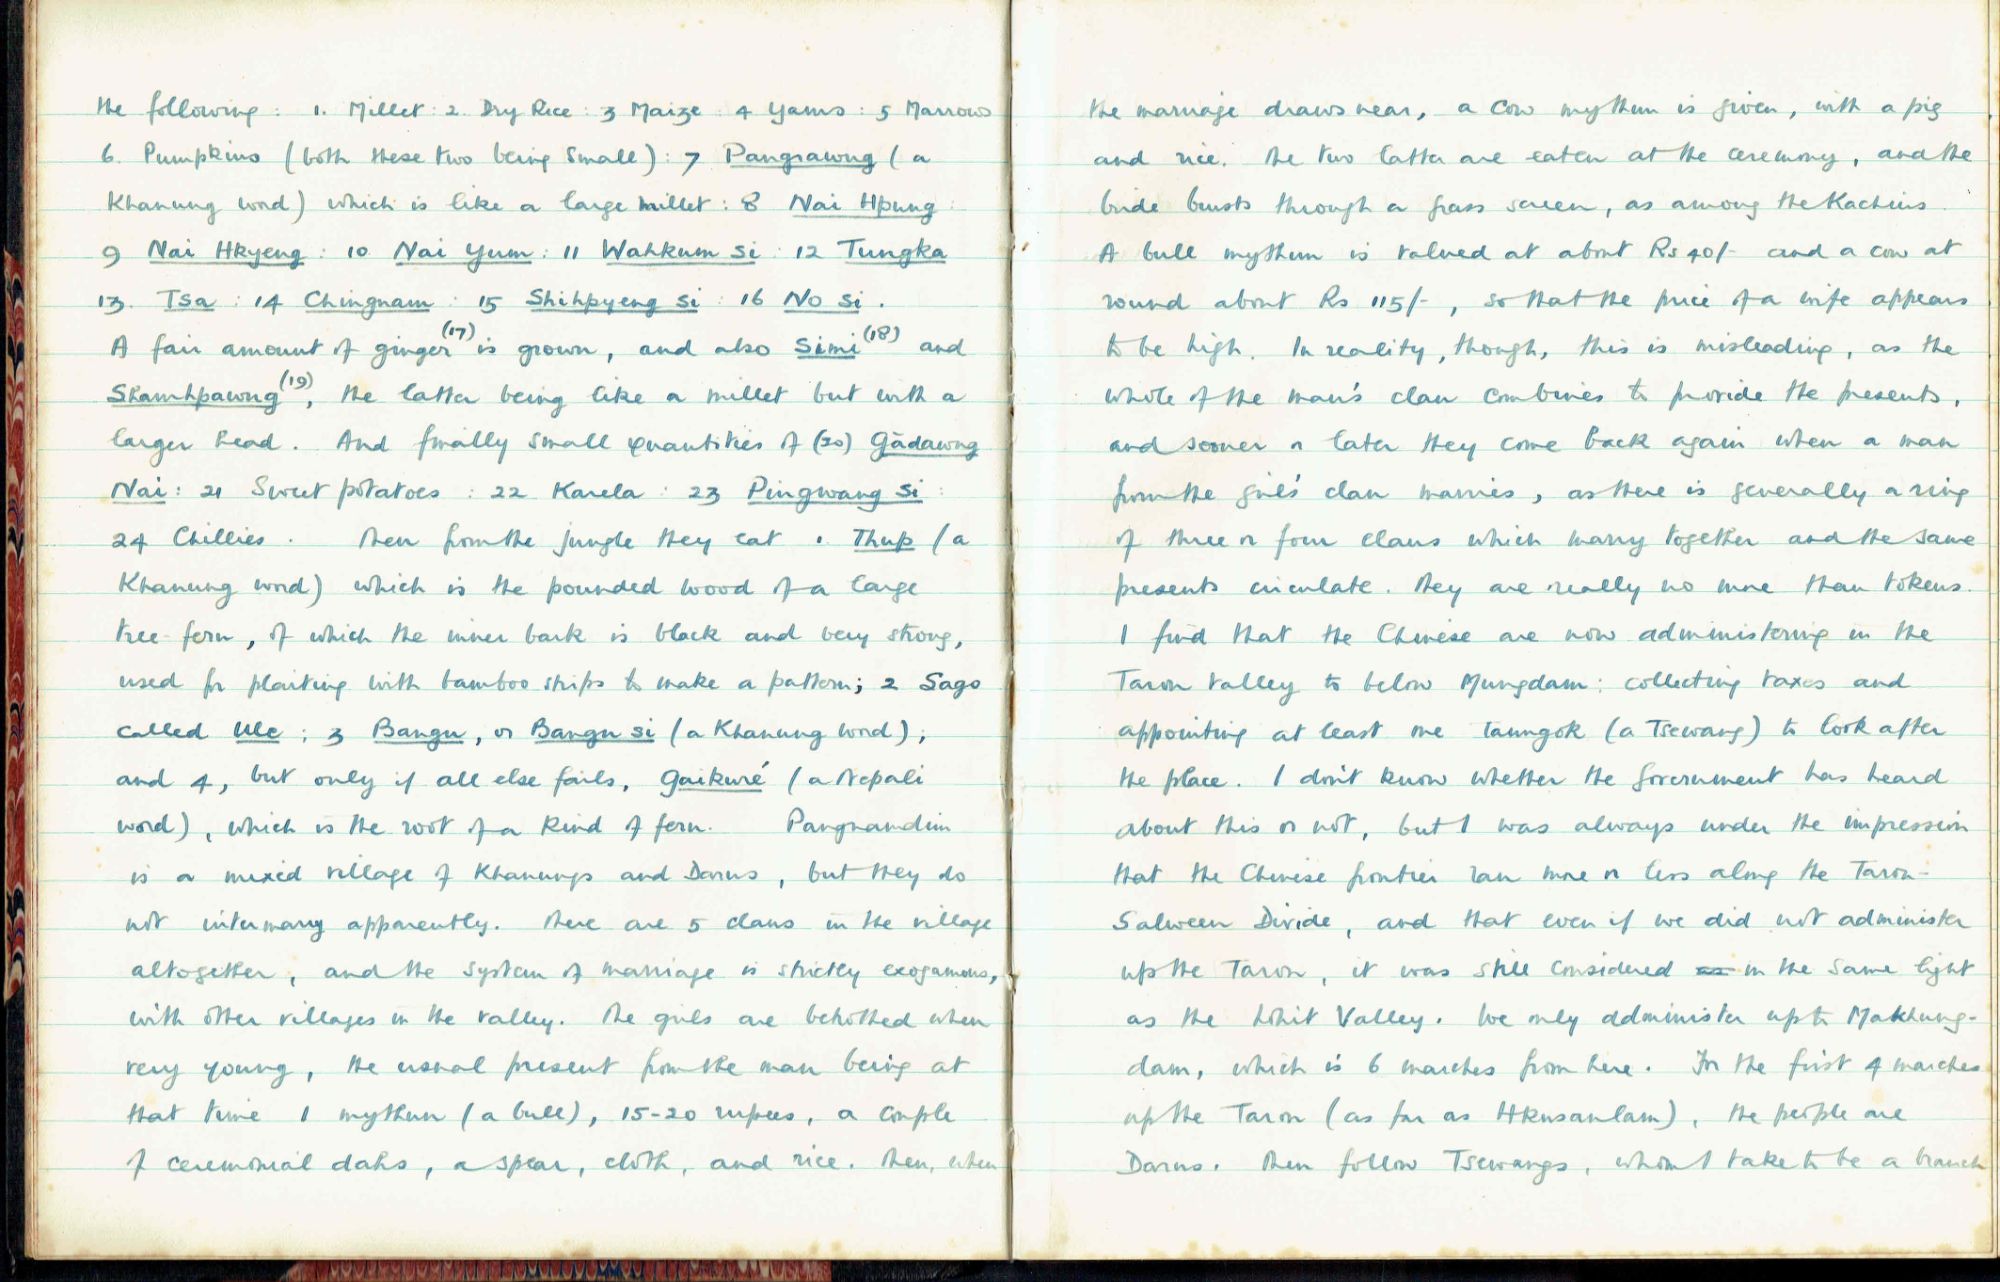 the following : 1. Millet : 2. Dry Rice : 3 Maize : 4 Yams : 5 Marrows
6. Pumpkins (both these two being small) : 7 Pangrawng (a
Khanung word) which is like a large millet : 8 Nai Hpung :
9 Nai Hkyeng : 10 Nai Yum : 11 Wahkum si : 12 Tungka
13. Tsa : 14 Chingnam : 15 Shihpyeng si : 16 No si .
A fair amount of ginger (17) is grown, and also Simi (18) and
Shamhpawng (19), the latter being like a millet but with a
larger head. And finally small quantities of (20) Gādawng
Nai : 21 Sweet potatoes : 22 Karela : 23 Pingwang si :
24 Chillies . Then from the jungle they eat 1. Thup (a
Khanung word) which is the pounded wood of a large
tree-fern, of which the inner bark is black and very strong,
used for plaiting with bamboo strips to make a pattern; 2 Sago
called Ule ; 3 Bangu, or Bangu si (a Khanung word) ;
and 4, but only if all else fails, Gaikuré (a Nepali
word), which is the root of a kind of fern. Pangnamdim
is a mixed village of Khanungs and Darus, but they do
not intermarry apparently. There are 5 clans in the village
altogether, and the system of marriage is strictly exogamous,
with other villages in the valley. The girls are betrothed when
very young, the usual present from the man being at
that time 1 mythun (a bull), 15-20 rupees, a couple
of ceremonial dahs, a spear, cloth, and rice. Then, when
the marriage draws near, a cow mythun is given, with a pig
and rice. The two latter are eaten at the ceremony, and the
bride bursts through a grass screen, as among the Kachins.
A bull mythun is valued at about Rs 40/- and a cow at
round about Rs 115/-, so that the price of a wife appears
to be high. In reality, though, this is misleading, as the
whole of the man's clan combines to provide the presents,
and sooner or later they come back again when a man
from the girl's clan marries, as there is generally a ring
of three or four clans which marry together and the same
presents circulate. They are really no more than tokens.
I find that the Chinese are now administering in the
Taron valley to below Mungdam : collecting taxes and
appointing at least one Taungok (a Tsewang) to look after
the place. I don't know whether the Government has heard
about this or not, but I was always under the impression
that the Chinese frontier ran more or less along the Taron-
Salween Divide, and that even if we did not administer
up the Taron, it was still considered as in the same light
as the Lohit Valley. We only administer up to Makhung-
dam, which is 6 marches from here. For the first 4 marches
up the Taron (as far as Hkusanlam), the people are
Darus. Then follow Tsewangs, whom I take to be a branch